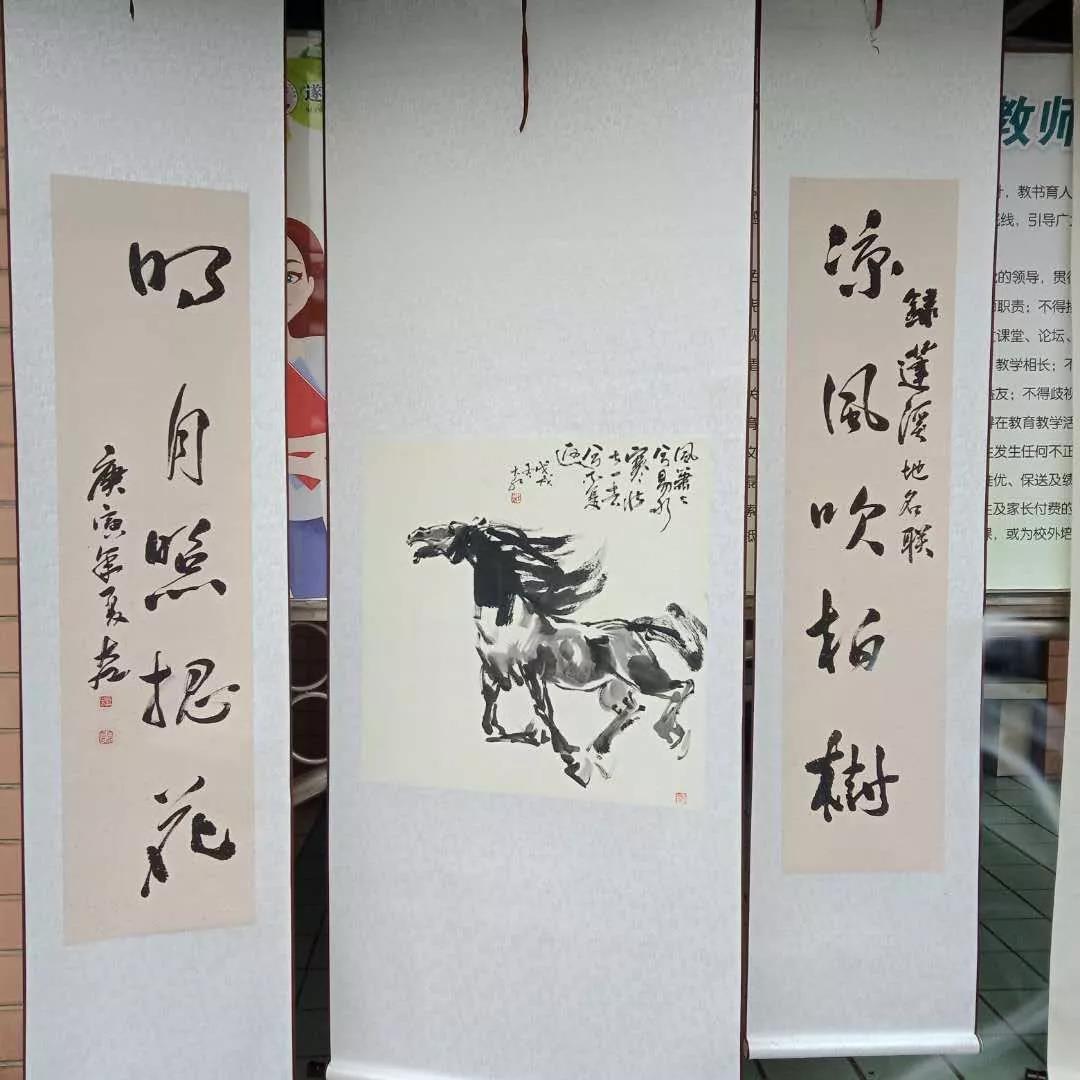 凉風吹柏樹
録蓬溪地名联
风萧〻
兮易水
寒壮
士一去
兮不复
返
戊戌
明月照槐花
庚寅年夏
遂
教师
，教书育人
底线，引导广
的领导，贯彻
职责；不得
课堂、论坛、
教学相长；不
益友；不得歧视
得在教育教学活
生发生任何不正
推优、保送及
生及家长付费的
课，或为校外培